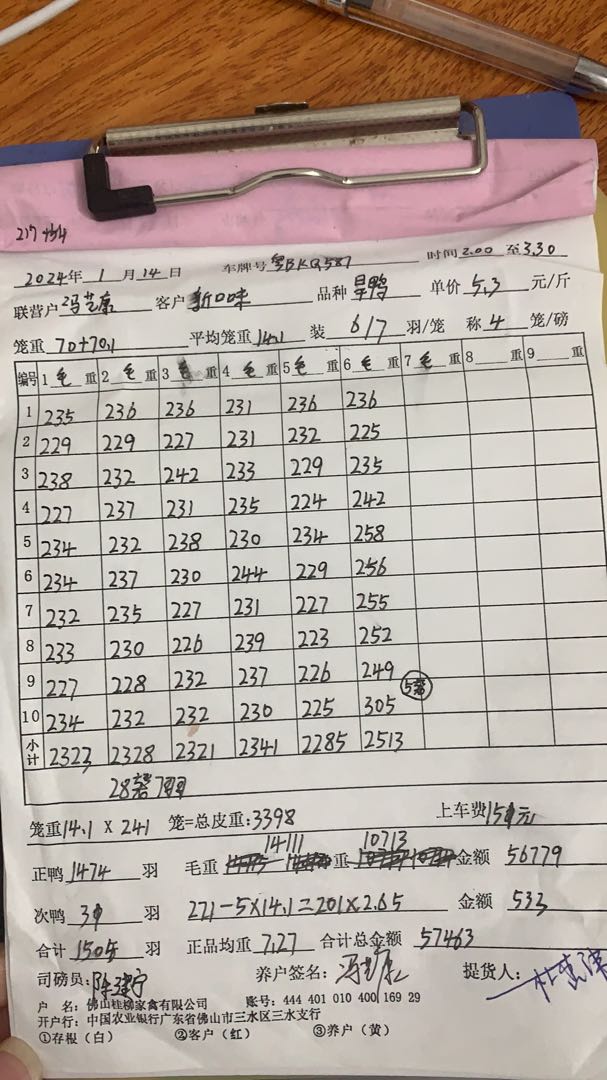 217 434
2024年 1 月 14 日 车牌号 粤BKQ587 时间 2.00 至 3.30
联营户 冯艺康 客户 新口味 品种 旱鸭 单价 5.3 元/斤
笼重 70+70.1 平均笼重 14.1 装 6/7 羽/笼 称 4 笼/磅
编号 1 毛 重 2 毛 重 3 毛 重 4 毛 重 5 毛 重 6 毛 重 7 毛 重 8 重 9 重
1 235 236 236 231 236 236
2 229 229 227 231 232 225
3 238 232 242 233 229 235
4 227 237 231 235 224 242
5 234 232 238 230 234 258
6 234 237 230 244 229 256
7 232 235 227 231 227 255
8 233 230 226 239 223 252
9 227 228 232 237 226 249
10 234 232 232 230 225 305 5笼
小计 2323 2328 2321 2341 2285 2513
28笼7羽
笼重 14.1 X 241 笼=总皮重: 3398 上车费 151元
正鸭 1474 羽 毛重 14111 重 10713 金额 56779
次鸭 31 羽 271-5×14.1=201×2.65 金额 533
合计 1505 羽 正品均重 7.27 合计总金额 57463
司磅员: 养户签名: 冯艺康 提货人:
户 名: 佛山桂柳家禽有限公司 账号: 444 401 010 400 169 29
开户行: 中国农业银行广东省佛山市三水区三水支行
①存根(白) ②客户(红) ③养户(黄)